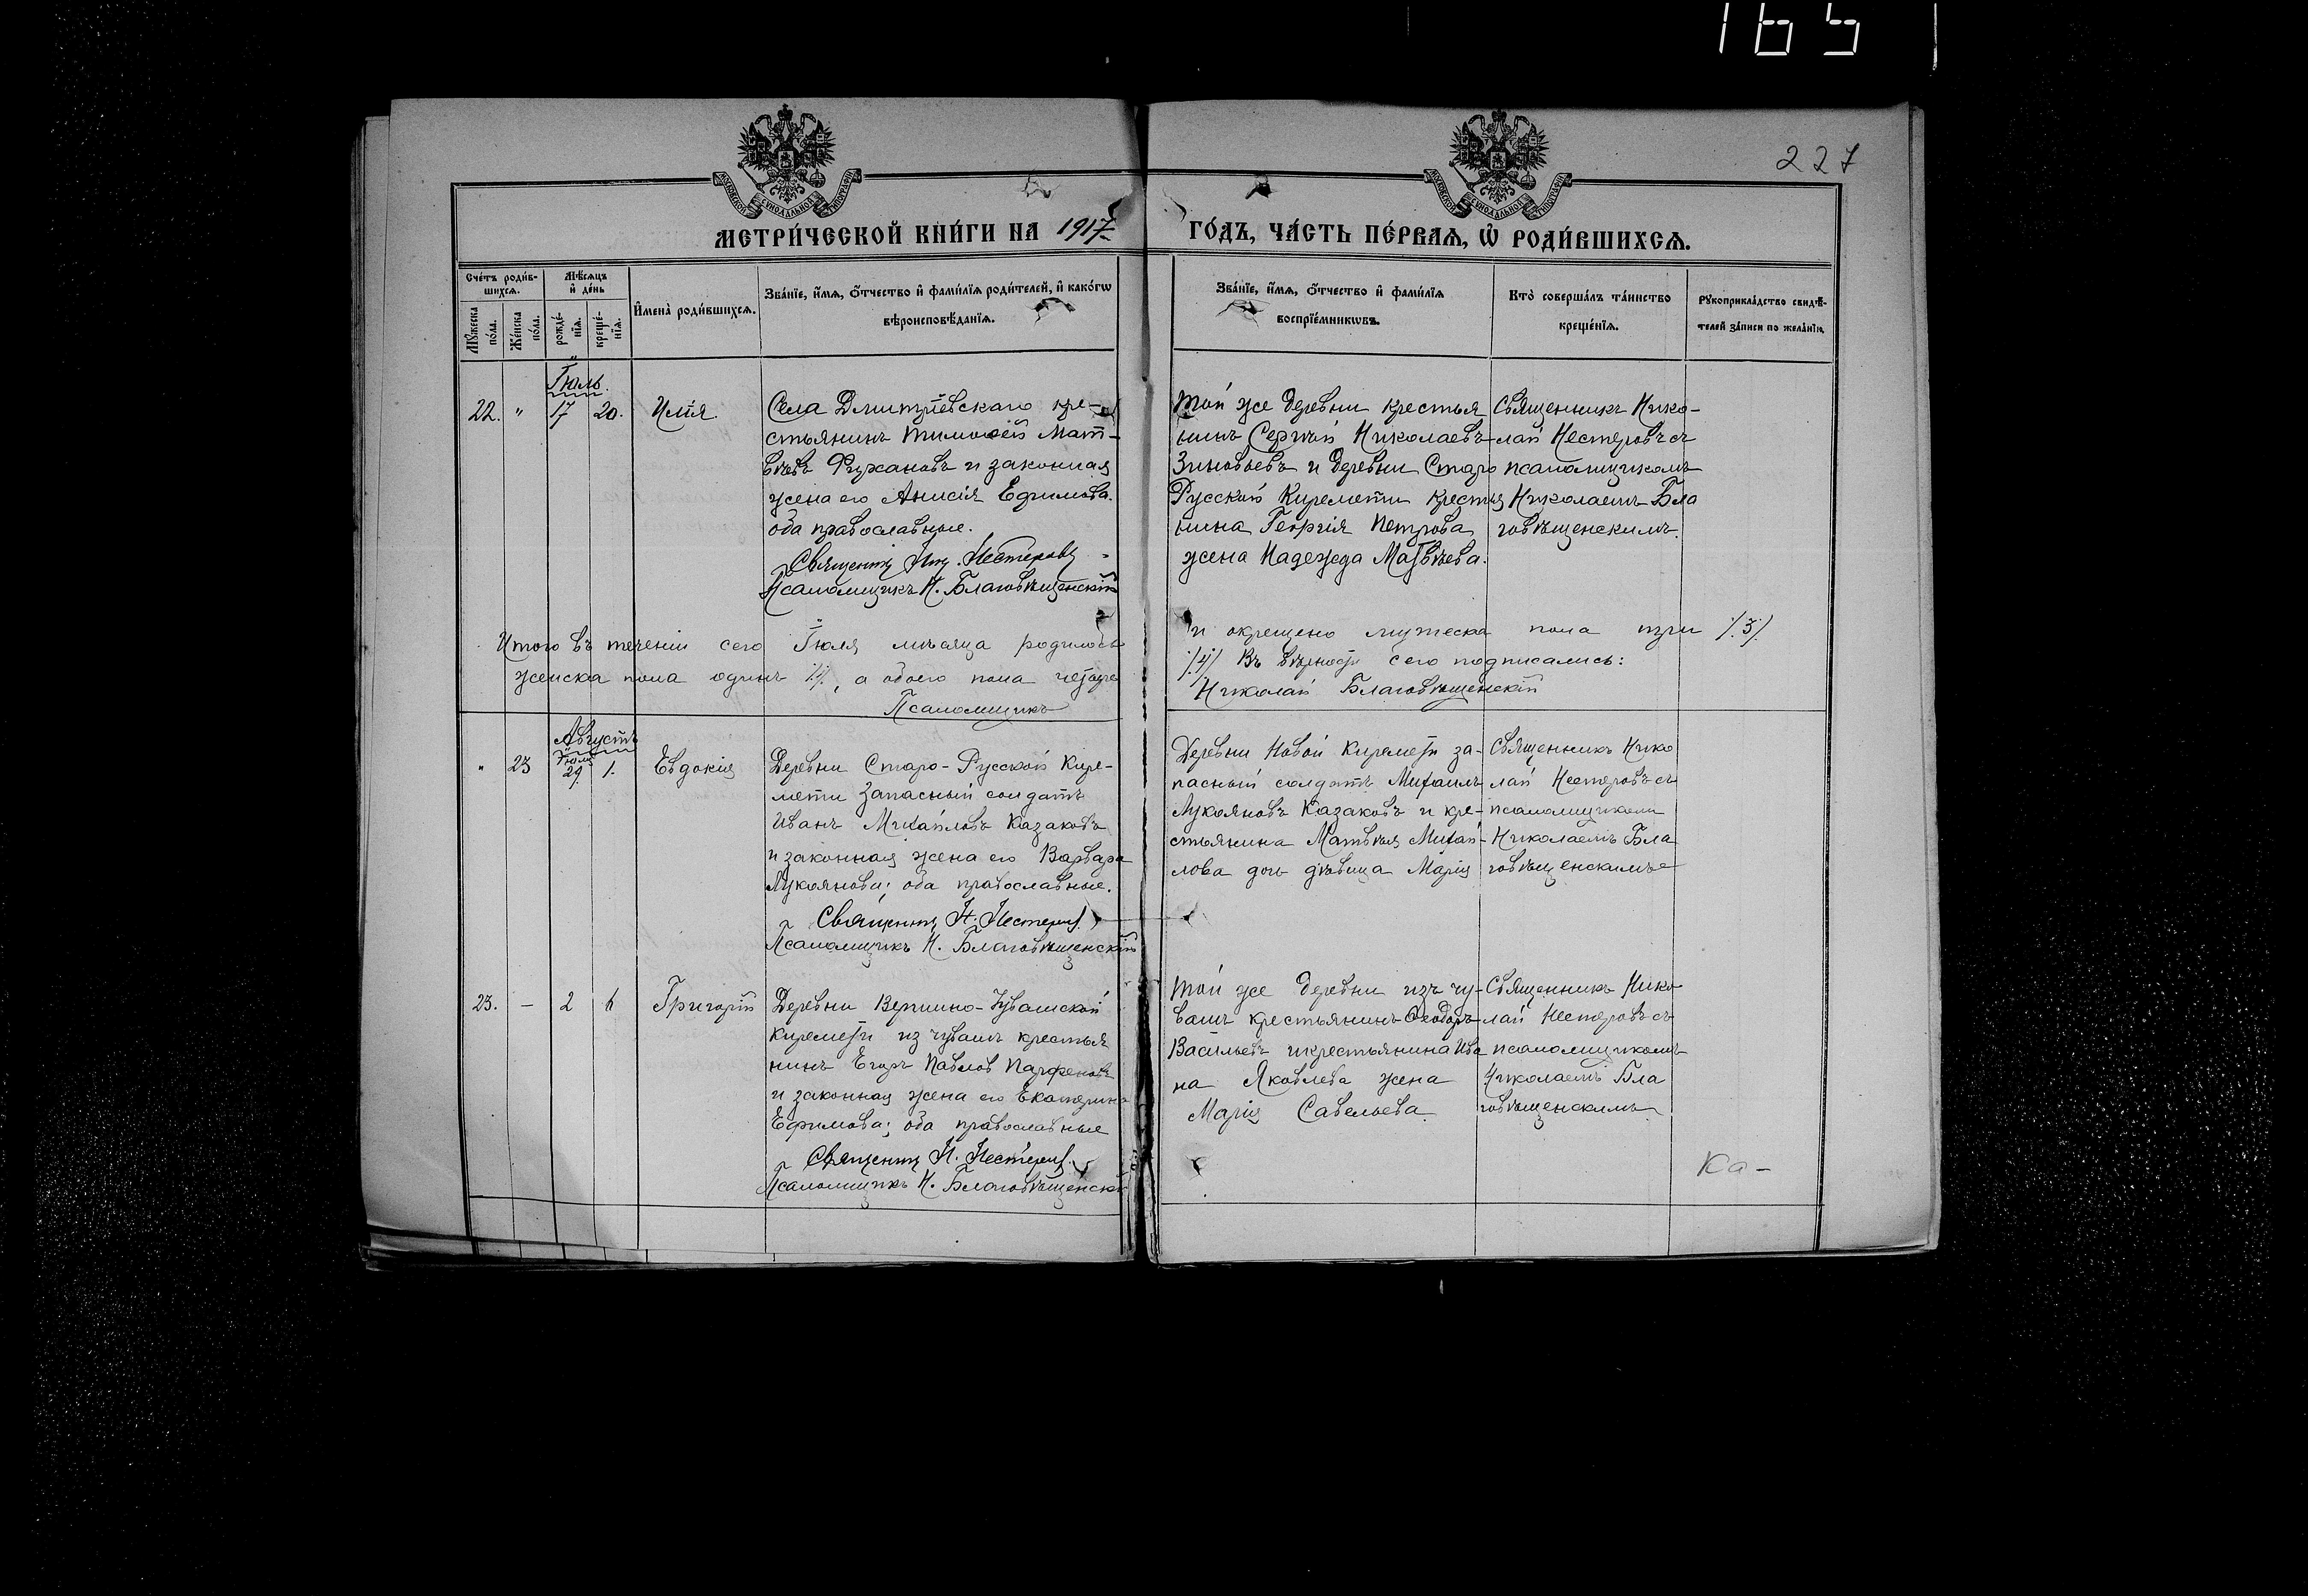 165
227
МОСКОВСКОЙ СѴНОДАЛЬНОЙ ТИПОГРАФІИ
МОСКОВСКОЙ СѴНОДАЛЬНОЙ ТИПОГРАФІИ
МЕТРИ́ЧЕСКОЙ КНИ́ГИ НА 1917
ГО́ДЪ, ЧА́СТЬ ПЕ́РВАѦ, Ѡ҆ РОДИ́ВШИХСѦ.
Сче́тъ роди́в-
шихсѧ.
Мѣ́сѧцъ
и҆ де́нь
И҆мена̀ роди́вшихсѧ.
Зва́нїе, и҆́мѧ, ѻ҆́тчество и҆ фами́лїѧ роди́телей, и҆ како́гѡ
вѣроисповѣ́данїѧ.
Мꙋ́жеска
по́ла.
Же́нска
по́ла.
рожде́-
нїѧ.
креще́-
нїѧ.
Зва́нїе, и҆́мѧ, ѻ҆́тчество и҆ фами́лїѧ
воспрїе́мникѡвъ.
Кто̀ соверша́лъ та́инство
креще́нїѧ.
Рꙋкоприкла́дство свидѣ́-
телей за́писи по жела́нїю.
Іюль.
22. " 17 20. Илія
Села Дмитріевскаго кре-
стьянинъ Тимоѳей Мат-
вѣевъ и законная
жена его Анисія Ефимова.
оба православные.
Священникъ Нестеровъ
Псаломщикъ Н. Благовѣщенскій
Той же деревни крестья
нинъ Сергѣй Николаевъ
Зиновьевъ и деревни Старо
Русской Киремети крестья
нина Георгія Петрова
жена Надежда Матвѣева.
Священникъ Нико-
лай Нестеровъ съ
псаломщикомъ
Николаемъ Бла
говѣщенскимъ.
Итого въ теченіи сего Іюля мѣсяца родилось
и окрещено мужеска пола три /3/
женска пола одинъ /1/, а обоего пола четыре
/4/ Въ вѣрности сего подписались:
Псаломщикъ
Николай Благовѣщенскій
Августъ
Іюля
" 23 29 1. Евдокія
Деревни Старо-Русской Кире-
мети запасный солдатъ
Иванъ Михайловъ Казаковъ
и законная жена его Варвара
Лукоянова; оба православные.
Священникъ Н. Нестеровъ
Псаломщикъ Н. Благовѣщенскій
Деревни Новой Киремети за-
пасный солдатъ Михаилъ
Лукояновъ Казаковъ и кре-
стьянина Матвѣя Михай-
лова дочь дѣвица Марія
Священникъ Нико
лай Нестеровъ съ
псаломщикомъ
Николаемъ Бла
говѣщенскимъ
23. — 2 6 Григорій
Деревни Вершино-Чувашской
Киремети из чувашъ крестья
нинъ Егоръ Павлов Парфеновъ
и законная жена его Екатерина
Ефимова; оба православные
Священникъ Н. Нестеровъ
Псаломщикъ Н. Благовѣщенскій
Той же деревни изъ чу-
вашъ крестьянинъ Ѳеодоръ
Васильевъ и крестьянина Ива
на Яковлева жена
Марія Савельева
Священникъ Нико
лай Нестеровъ съ
псаломщикомъ
Николаемъ Бла
говѣщенскимъ
Ка-